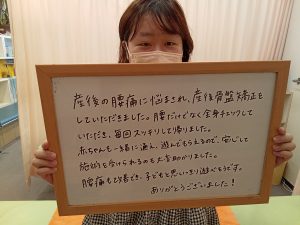 産後の腰痛に悩まされ、産後骨盤矯正を
していただきました。腰だけでなく全身チェックして
いただき、毎回スッキリして帰りました。
赤ちゃんも一緒に通え、遊んでもらえるので、安心して
施術を受けられるのも大変助かりました。
腰痛も改善でき、子どもと思いっきり遊べそうです。
ありがとうございました！